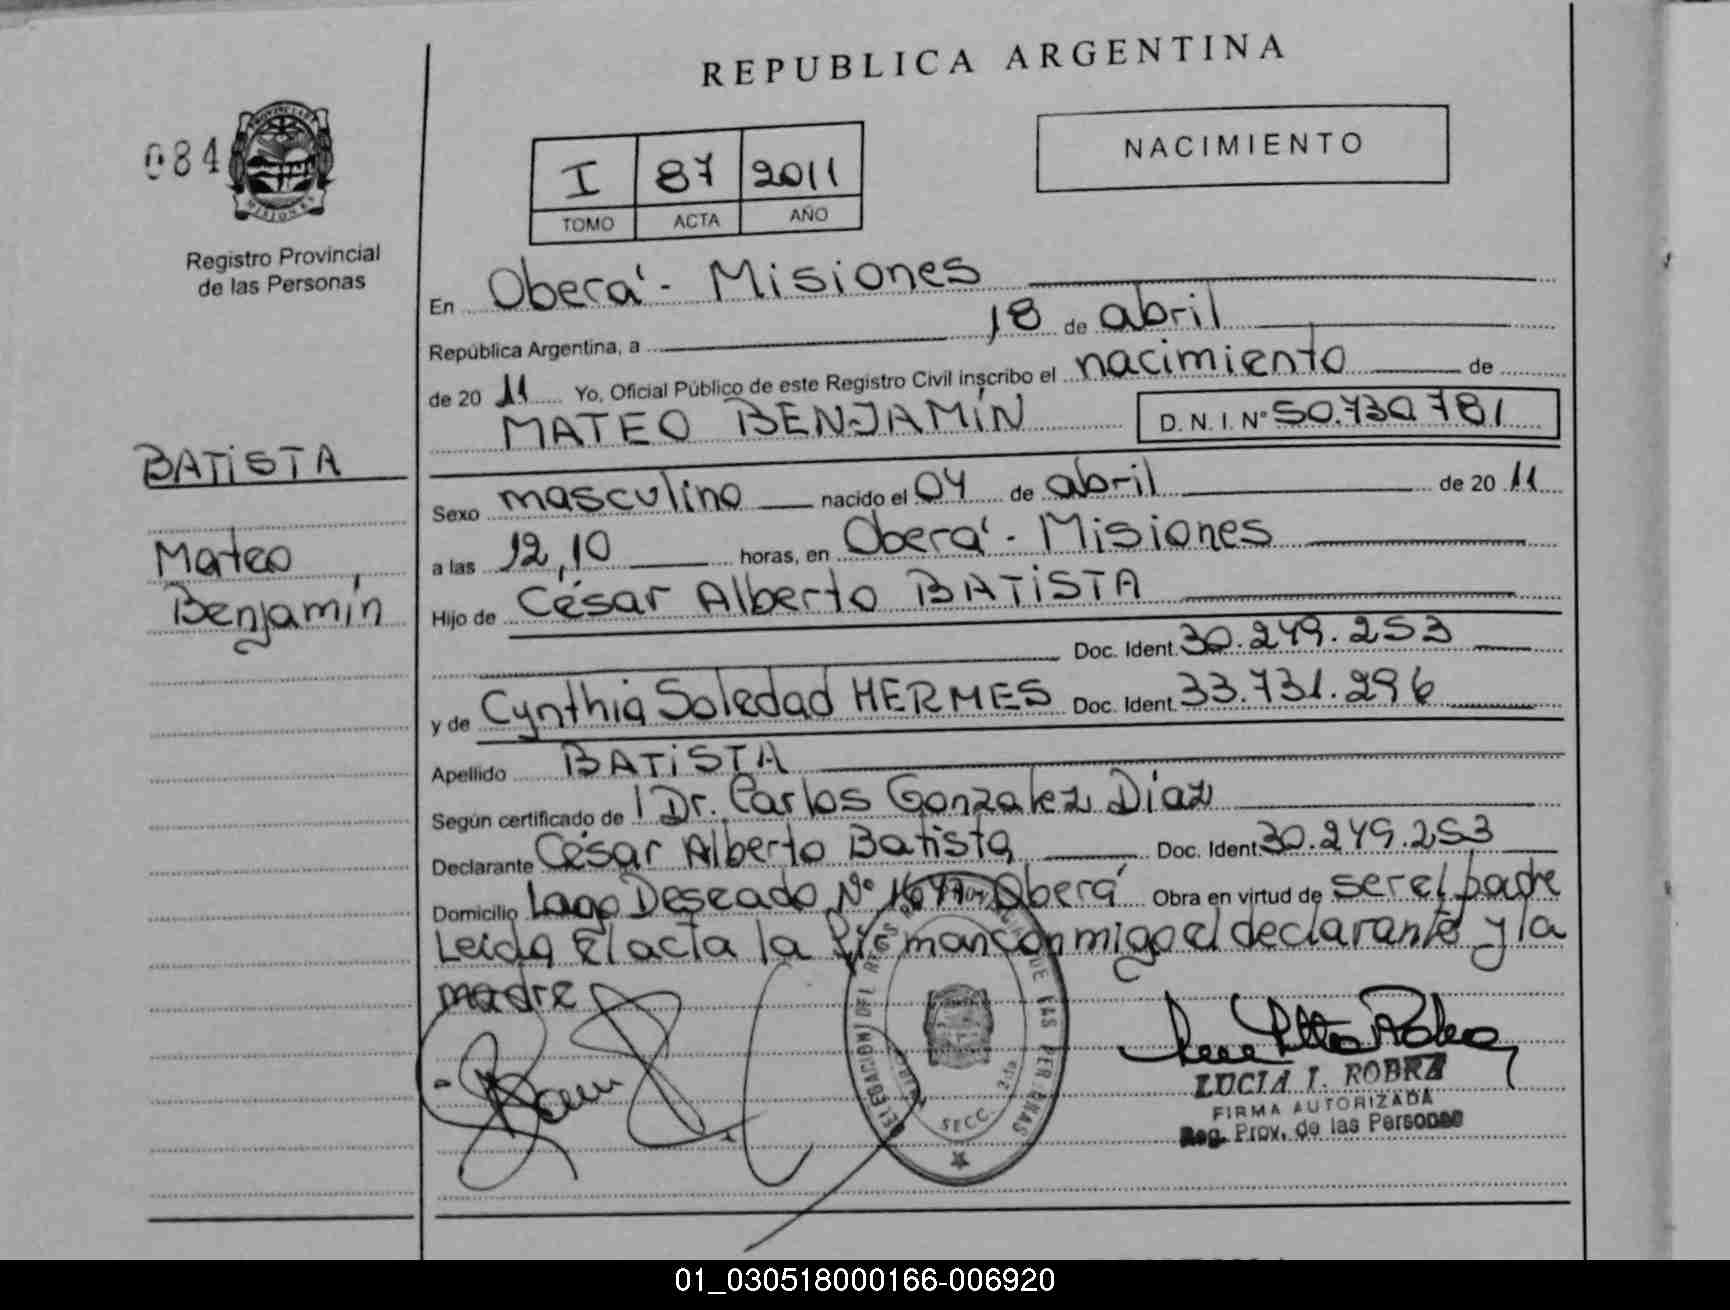 REPUBLICA ARGENTINA
084
PROVINCIA DE
MISIONES
Registro Provincial
de las Personas
I 87 2011
TOMO ACTA AÑO
NACIMIENTO
En Oberá - Misiones
República Argentina, a 18 de abril
de 20 11 Yo, Oficial Público de este Registro Civil inscribo el nacimiento de
MATEO BENJAMÍN D.N.I. Nº 50.730.781
BATISTA
Mateo
Benjamín
Sexo masculino nacido el 04 de abril de 20 11
a las 12,10 horas, en Oberá - Misiones
Hijo de César Alberto BATISTA
Doc. Ident. 30.249.253
y de Cynthia Soledad HERMES Doc. Ident. 33.731.296
Apellido BATISTA
Según certificado de Dr. Carlos Gonzalez Díaz
Declarante César Alberto Batista Doc. Ident. 30.249.253
Domicilio Lago Deseado Nº Oberá Obra en virtud de ser el padre
Leida el acta la firman conmigo el declarante y la
madre
DE LAS PERSONAS
SECC. 2da
LUCIA I. ROBRA
FIRMA AUTORIZADA
Reg. Prov. de las Personas
01_030518000166-006920